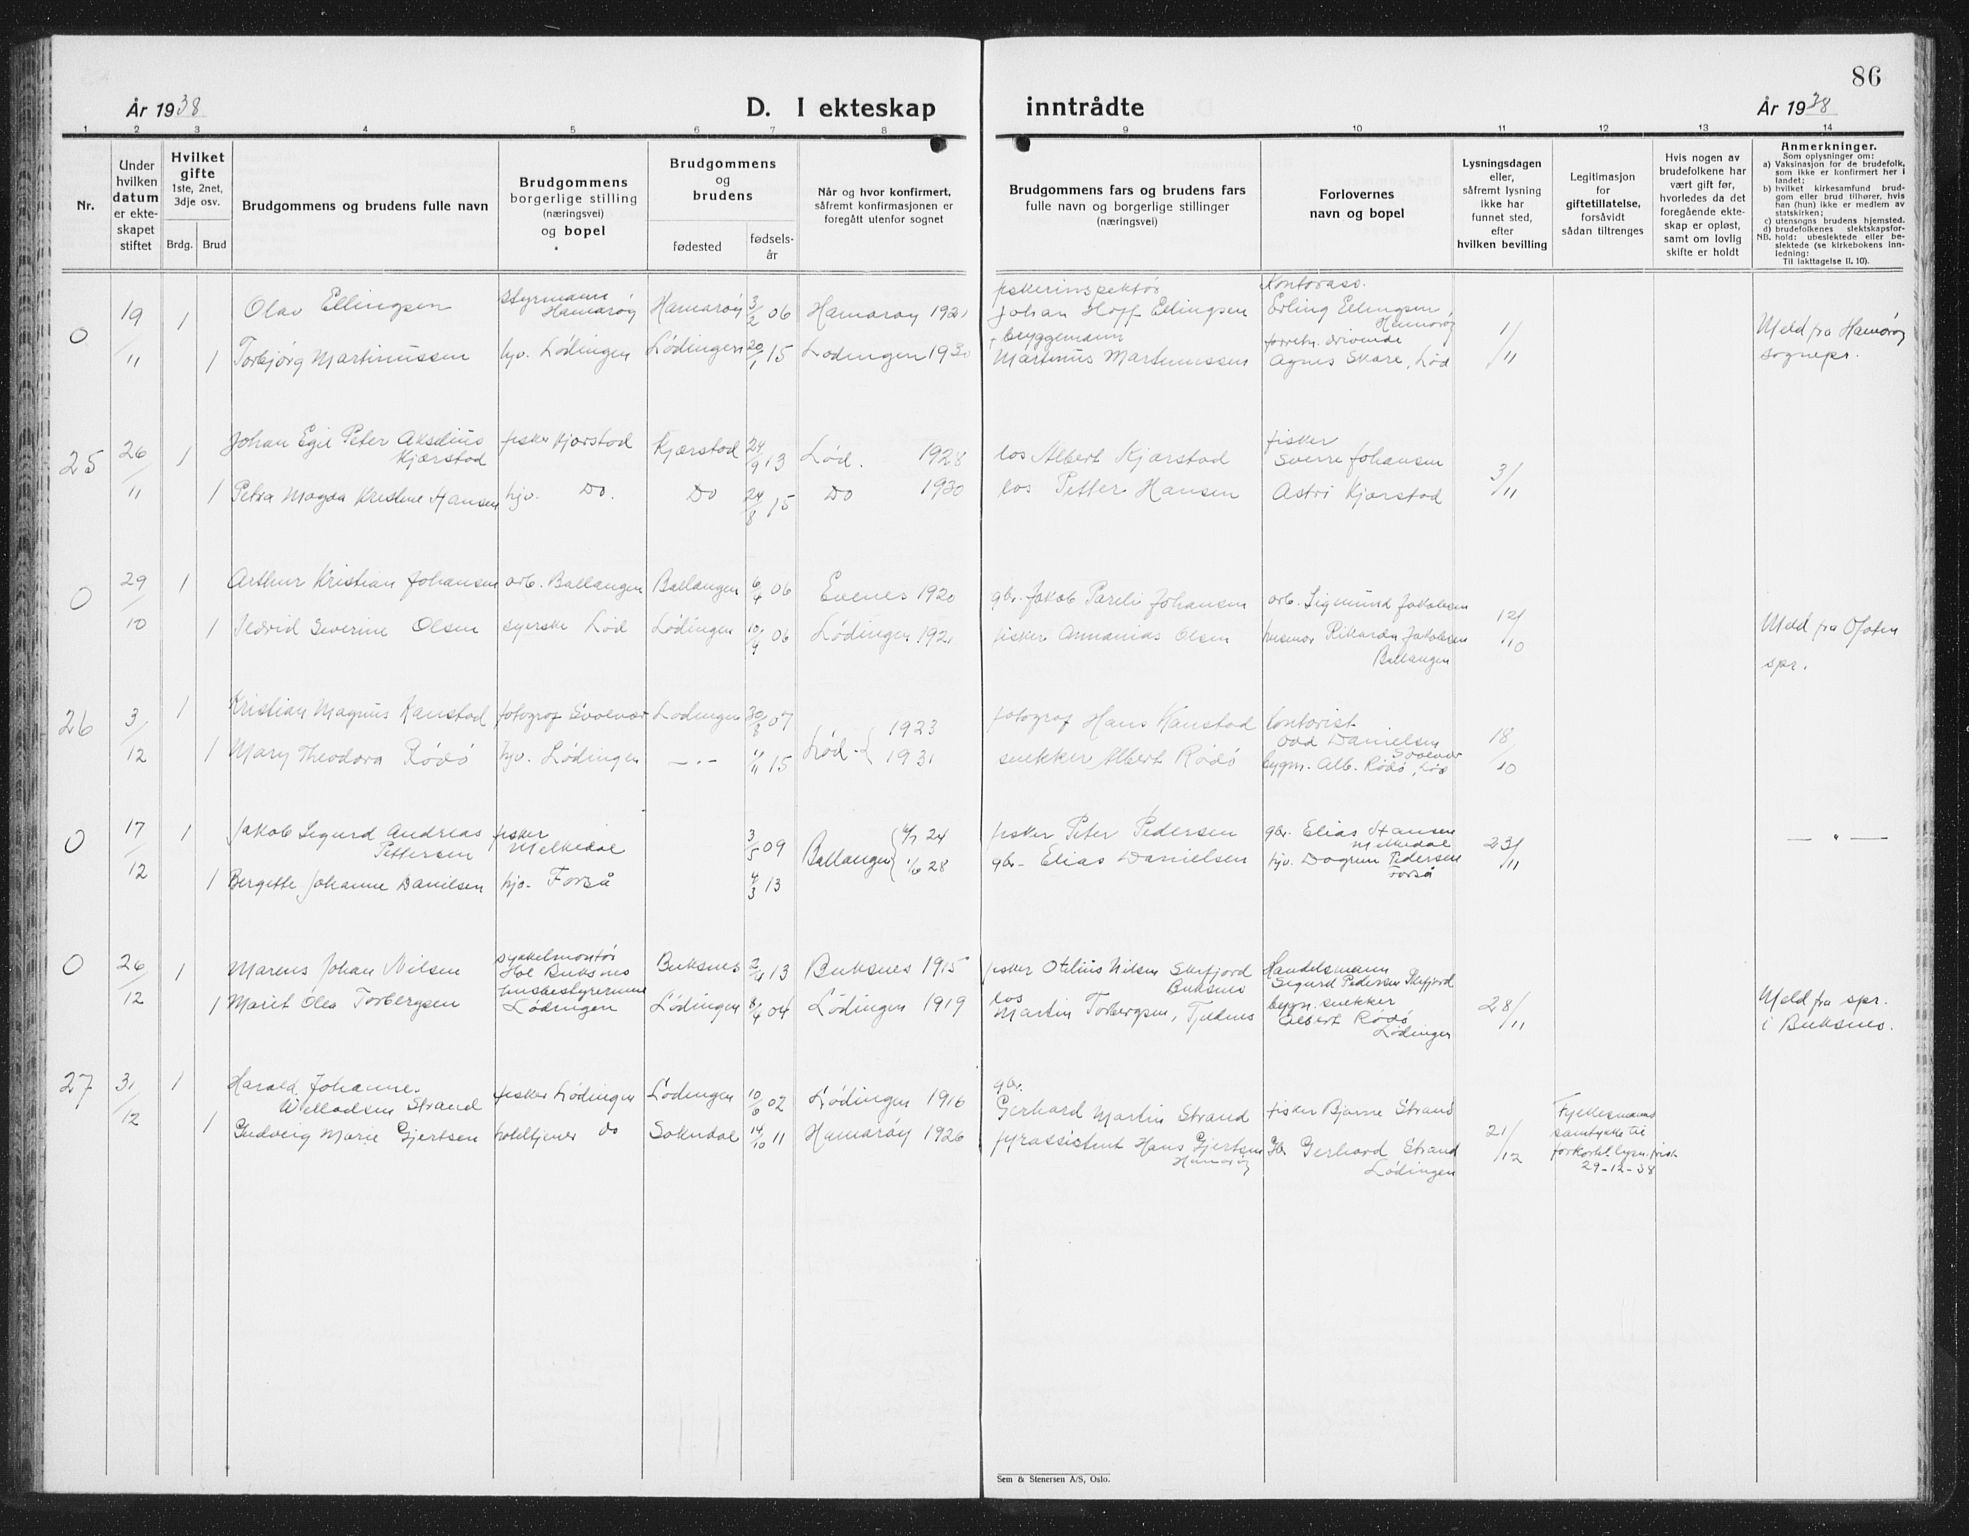 86
År 1938
D. I ekteskap
inntrådte
År 1938
1 2 3 4 5 6 7 8 9 10 11 12 13 14
Nr.
Under
hvilken
datum
er ekte-
skapet
stiftet
Hvilket
gifte
1ste, 2net,
3dje osv.
Brdg. Brud
Brudgommens og brudens fulle navn
Brudgommens
borgerlige stilling
(næringsvei)
og bopel
Brudgommens
og
brudens
fødested
fødsels-
år
Når og hvor konfirmert,
såfremt konfirmasjonen er
foregått utenfor sognet
Brudgommens fars og brudens fars
fulle navn og borgerlige stillinger
(næringsvei)
Forlovernes
navn og bopel
Lysningsdagen
eller,
såfremt lysning
ikke har
funnet sted,
efter
hvilken bevilling
Legitimasjon
for
giftetillatelse,
forsåvidt
sådan tiltrenges
Hvis nogen av
brudefolkene har
vært gift før,
hvorledes da det
foregående ekte-
skap er opløst,
samt om lovlig
skifte er holdt
Anmerkninger.
Som oplysninger om:
a) Vaksinasjon for de brudefolk,
som ikke er konfirmert her i
landet;
b) hvilket kirkesamfund brud-
gom eller brud tilhører, hvis
han (hun) ikke er medlem av
statskirken;
c) utensogns brudens hjemsted.
d) brudefolkenes slektskapsfor-
NB. hold: ubeslektede eller be-
slektede (se kirkebokens inn-
ledning:
Til iakttagelse II, 10).
0 19/11 1 Olav Ellingsen styrmann Hamarøy Hamarøy 3/2 06 Hamarøy 1921 fiskerinspektør Johan Hoff Ellingsen Kontorass. Erling Ellingsen, Hamarøy 1/11 Meld fra Hamarøy sognepr.
1 Torbjørg Martinussen hjv. Lødingen Lødingen 20/1 15 Lødingen 1930 + byggemann Martinus Martinussen forretn. drivende Agnes Skare, Lød
25 26/11 1 Johan Egil Peter Akselius Kjærstad fisker Kjærstad Kjærstad 24/9 13 Lød. 1928 los Albert Kjærstad fisker Sverre Johansen 3/11
1 Petra Magda Kristine Hansen hjv. Do. Do 24/8 15 Do 1930 los Petter Hansen Astri Kjærstad
0 29/10 1 Arthur Kristian Johansen arb. Ballangen Ballangen 6/4 06 Evenes 1920 gbr. Jakob Pareli Johansen arb. Sigmund Jakobsen 12/10 Meld fra Ofoten spr.
1 Ildrid Severine Olsen syerske Lød Lødingen 10/9 06 Lødingen 1921 fisker Ammanias Olsen husmor Rikarda Jakobsen Ballangen
26 3/12 1 Kristian Magnus Kanstad fotograf Svolvær Lødingen 30/8 07 Lød. { 1923 fotograf Hans Kanstad kontorist Odd Danielsen Svolvær 18/10
1 Mary Theodora Rødø hjv. Lødingen —.— 11 15 1931 snekker Albert Rødø bygm. Alb. Rødø, Lød
0 17/12 1 Jakob Sigurd Andreas Pettersen fisker Melkedal 3/5 09 Ballangen { 24 fisker Peter Pedersen gbr. Elias Hansen Melkedal 23/11 — " —
1 Bergitte Johanne Danilsen hjv. Forså 4/3 13 1/6 28 gbr. Elias Danielsen hjv. Dagrun Pedersen Forså
0 26/12 1 Marens Johan Nilsen sykkelmontør Hol Buksnes Buksnes 2/4 13 Buksnes 1915 fisker Otelius Nilsen Skefjord Buksnes Handelsmann Sigurd Pedersen Skefjord 28/11 Meld fra spr. i Buksnes.
1 Marit Olea Torbergsen husbestyrerinne Lødingen Lødingen 8/4 04 Lødingen 1919 los Martin Torbergsen, Tjeldnes bygn. snekker Albert Rødø Lødingen
27 31/12 1 Harald Johannes Willadsen Strand fisker Lødingen Lødingen 10/6 02 Lødingen 1916 gbr. Gerhard Martin Strand fisker Bjarne Strand 21/12 Fylkesmanns samtykke til forkortet lysn. frist 29-12-38
1 Gudveig Marie Gjertsen hotelltjener do Sokndal 14/10 11 Hamarøy 1926 fyrassistent Hans Gjertsen Hamarøy Gbr Gerhard Strand Lødingen
Sem & Stenersen A/S, Oslo.